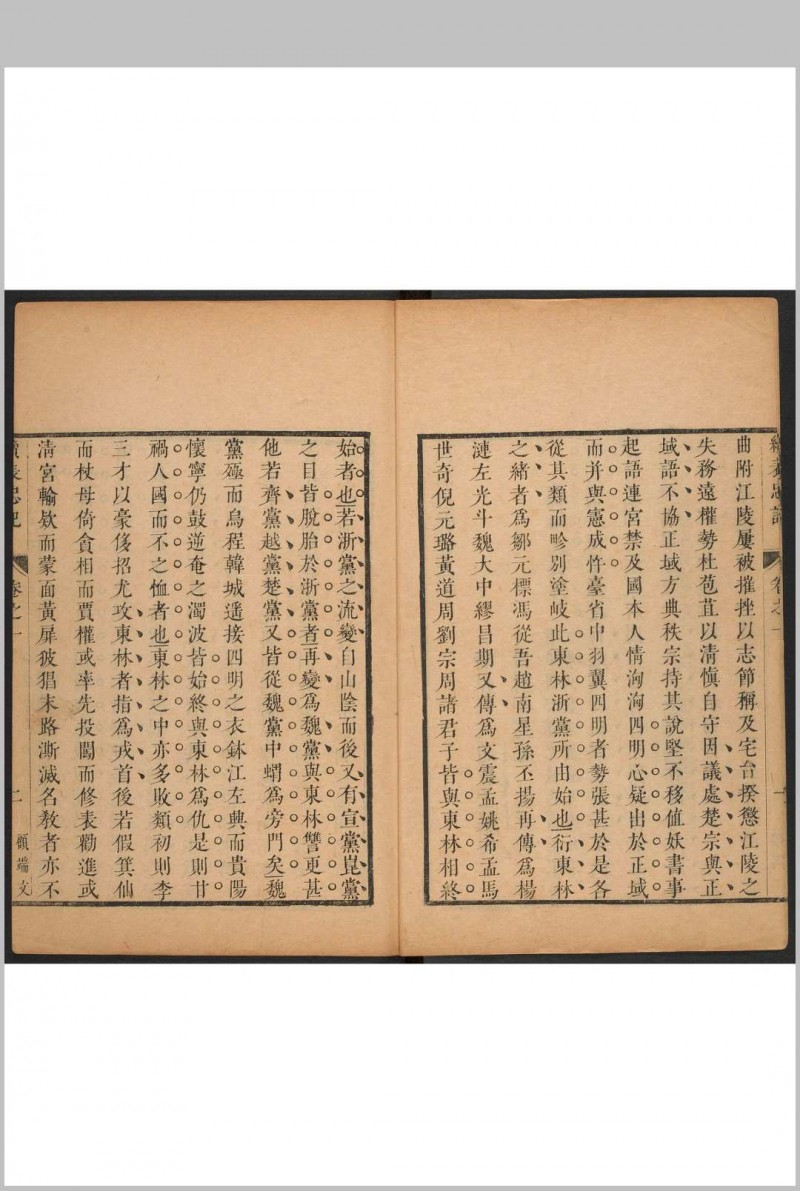 曲附江陵屢被摧挫以志節稱及宅台揆懲江陵之
失務遠權勢杜苞苴以清愼自守因議處楚宗與正
域語不協正域方典秩宗持其說堅不移値妖書事
起語連宮禁及國本人情洶洶四明心疑出於正域
而并與憲成忤臺省中羽翼四明者勢張甚於是各
從其類而畛别塗岐此東林浙黨所由始也衍東林
之緖者爲鄒元標馮從吾趙南星孫丕揚再傳爲楊
漣左光斗魏大中繆昌期又傳爲文震孟姚希孟馬
世奇倪元璐黃道周劉宗周諸君子皆與東林相終
卷之一
一
始者也若浙黨之流變自山陰而後又有宣黨崑黨
之目皆脫胎於浙黨者再變爲魏黨與東林讐更甚
他若齊黨越黨楚黨又皆從魏黨中蝟爲旁門矣魏
黨殛而烏程韓城遥接四明之衣鉢江左興而貴陽
懷寧仍鼓逆奄之濁波皆始終與東林爲仇是則甘
禍人國而不之恤者也東林之中亦多敗類初則李
三才以豪侈招尤攻東林者指爲戎首後若假箕仙
而杖母倚貪相而賈權或率先投闖而修表勸進或
清宮輸欵而蒙面黃扉彼猖末路澌滅名敎者亦不
卷之一
二
顧端文